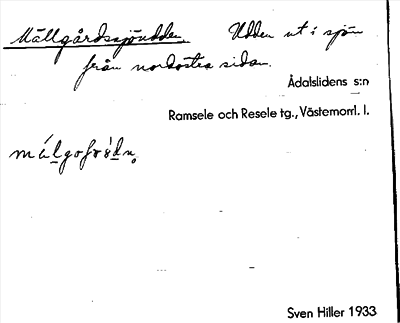 Mällgårdssjöudden Udden ut i sjön
från nordöstra sidan.
Ådalslidens s:n
Ramsele och Resele tg., Västernorrl. l.
Sven Hiller 1933